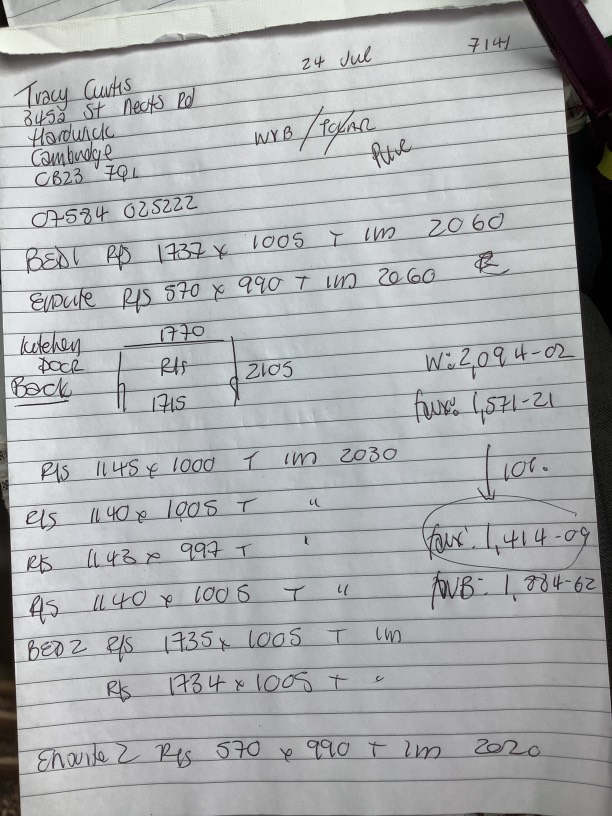 24 Jul 7141
Tracy Curtis
345a St Neots Rd
Hardwick
Cambridge
CB23 7QL
WYB /
Pure
07584 025222
BED1 R/S 1737 x 1005 T 1m 2060
Ensuite R/S 570 x 990 T 1m 2060
Kitchen
DOOR
Back
1770
R/S
1715
2105
W: 2,094-02
faux: 1,571-21
R/S 1145 x 1000 T 1m 2030
10%
R/S 1140 x 1005 T "
R/S 1143 x 997 T "
faux: 1,414-09
R/S 1140 x 1005 T "
FWB: 1,884-62
BED2 R/S 1735 x 1005 T 1m
R/S 1734 x 1005 T "
Ensuite 2 R/S 570 x 990 T 1m 2020